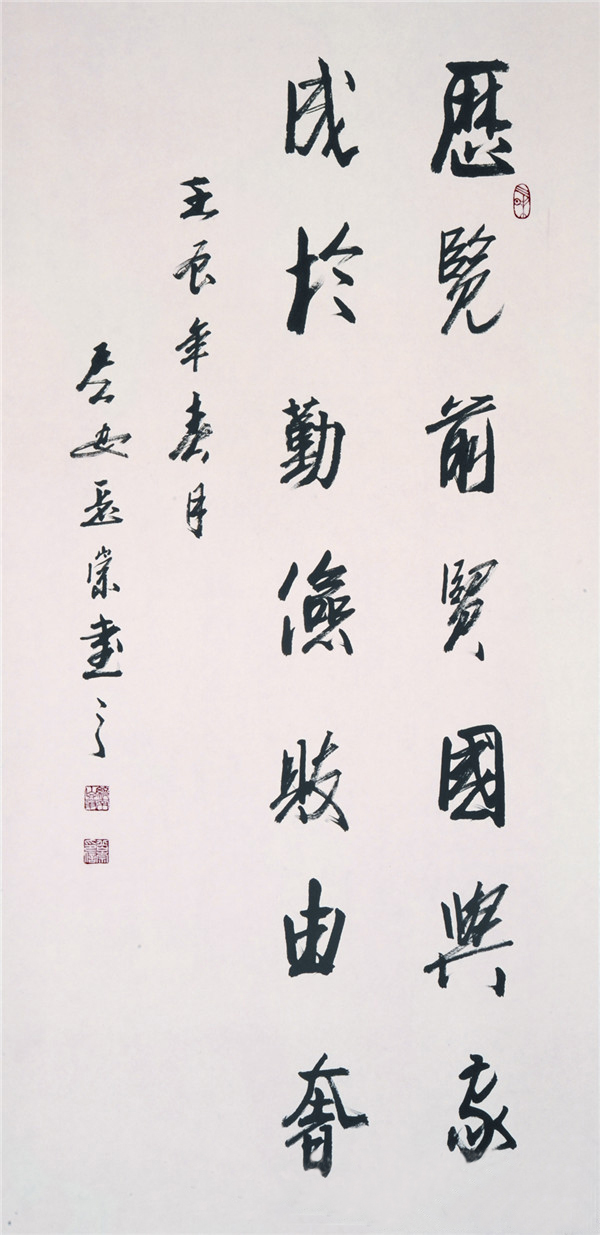 歷覽前賢國與家
成於勤儉敗由奢
壬辰年春月
崇書